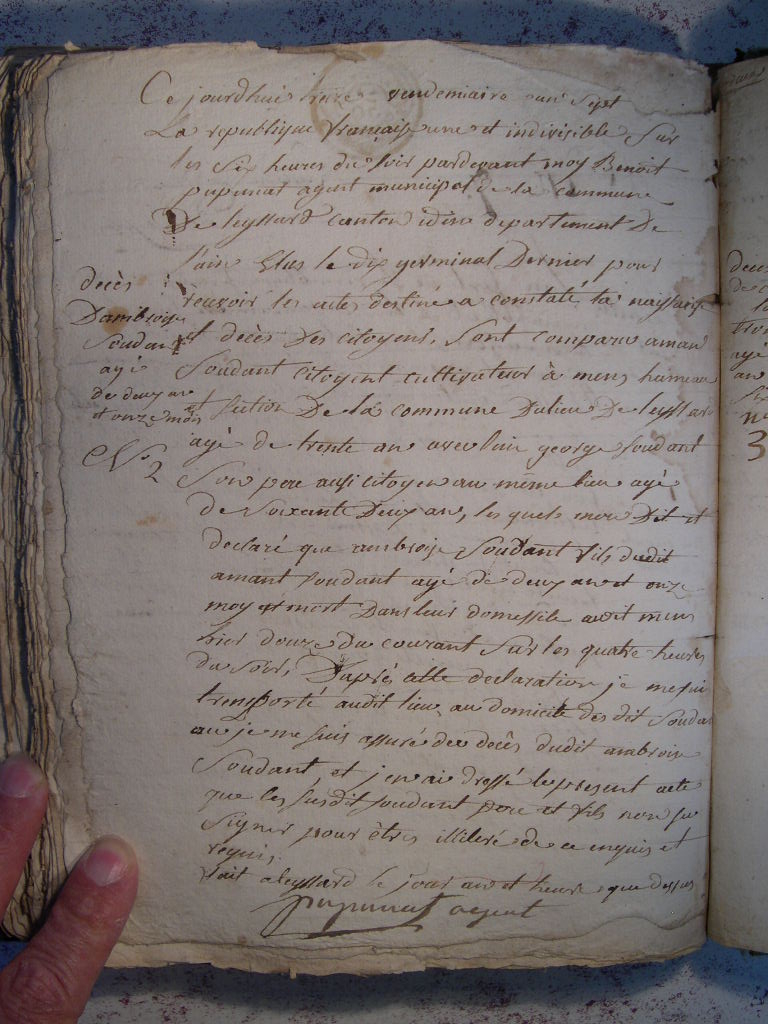 Ce jourdhui treze vendemiaire an Sept
La republique française une et indivisible Sur
les Six heures du Soir pardevant moy Benoit
pupunat agent municipal de la commune
De leyssard canton idem departement De
l'ain Elus le dix germinal Dernier pour
recevoir les actes destiné a constaté la naissance
et decès Des citoyens, Sont comparu aman
Soudant citoyent cultivateur à mens humeau
et Section De la commune Dulieu De leyssard
agé de trente an avec luin george Soudant
Son pere ausi citoyen au même lieu agé
de Soixante Deux an, les quels mon Dit et
declaré que ambroise Soudant fils dudit
amant Soudant agé de deux an et onze
moy est mort Dans leur domessile audit mens
hier douze du courant Sur les quatre heures
du Soir, D'après cette declaration je me sui
transporté audit lieu au domicile des dit Soudan
au je me suis assuré deu decès dudit ambroise
Soudant, et j'en ai dressé le present acte
que les Susdit Soudant pere et fils non su
Signer pour êtres illiteré de ce enquis et
requis.
fait a leyssard le jour an et heure que dessus
pupunat agent
decès
Dambroise
Soudant
agé
de deux an
et onze mois
N° 2
deces
agé
an
3